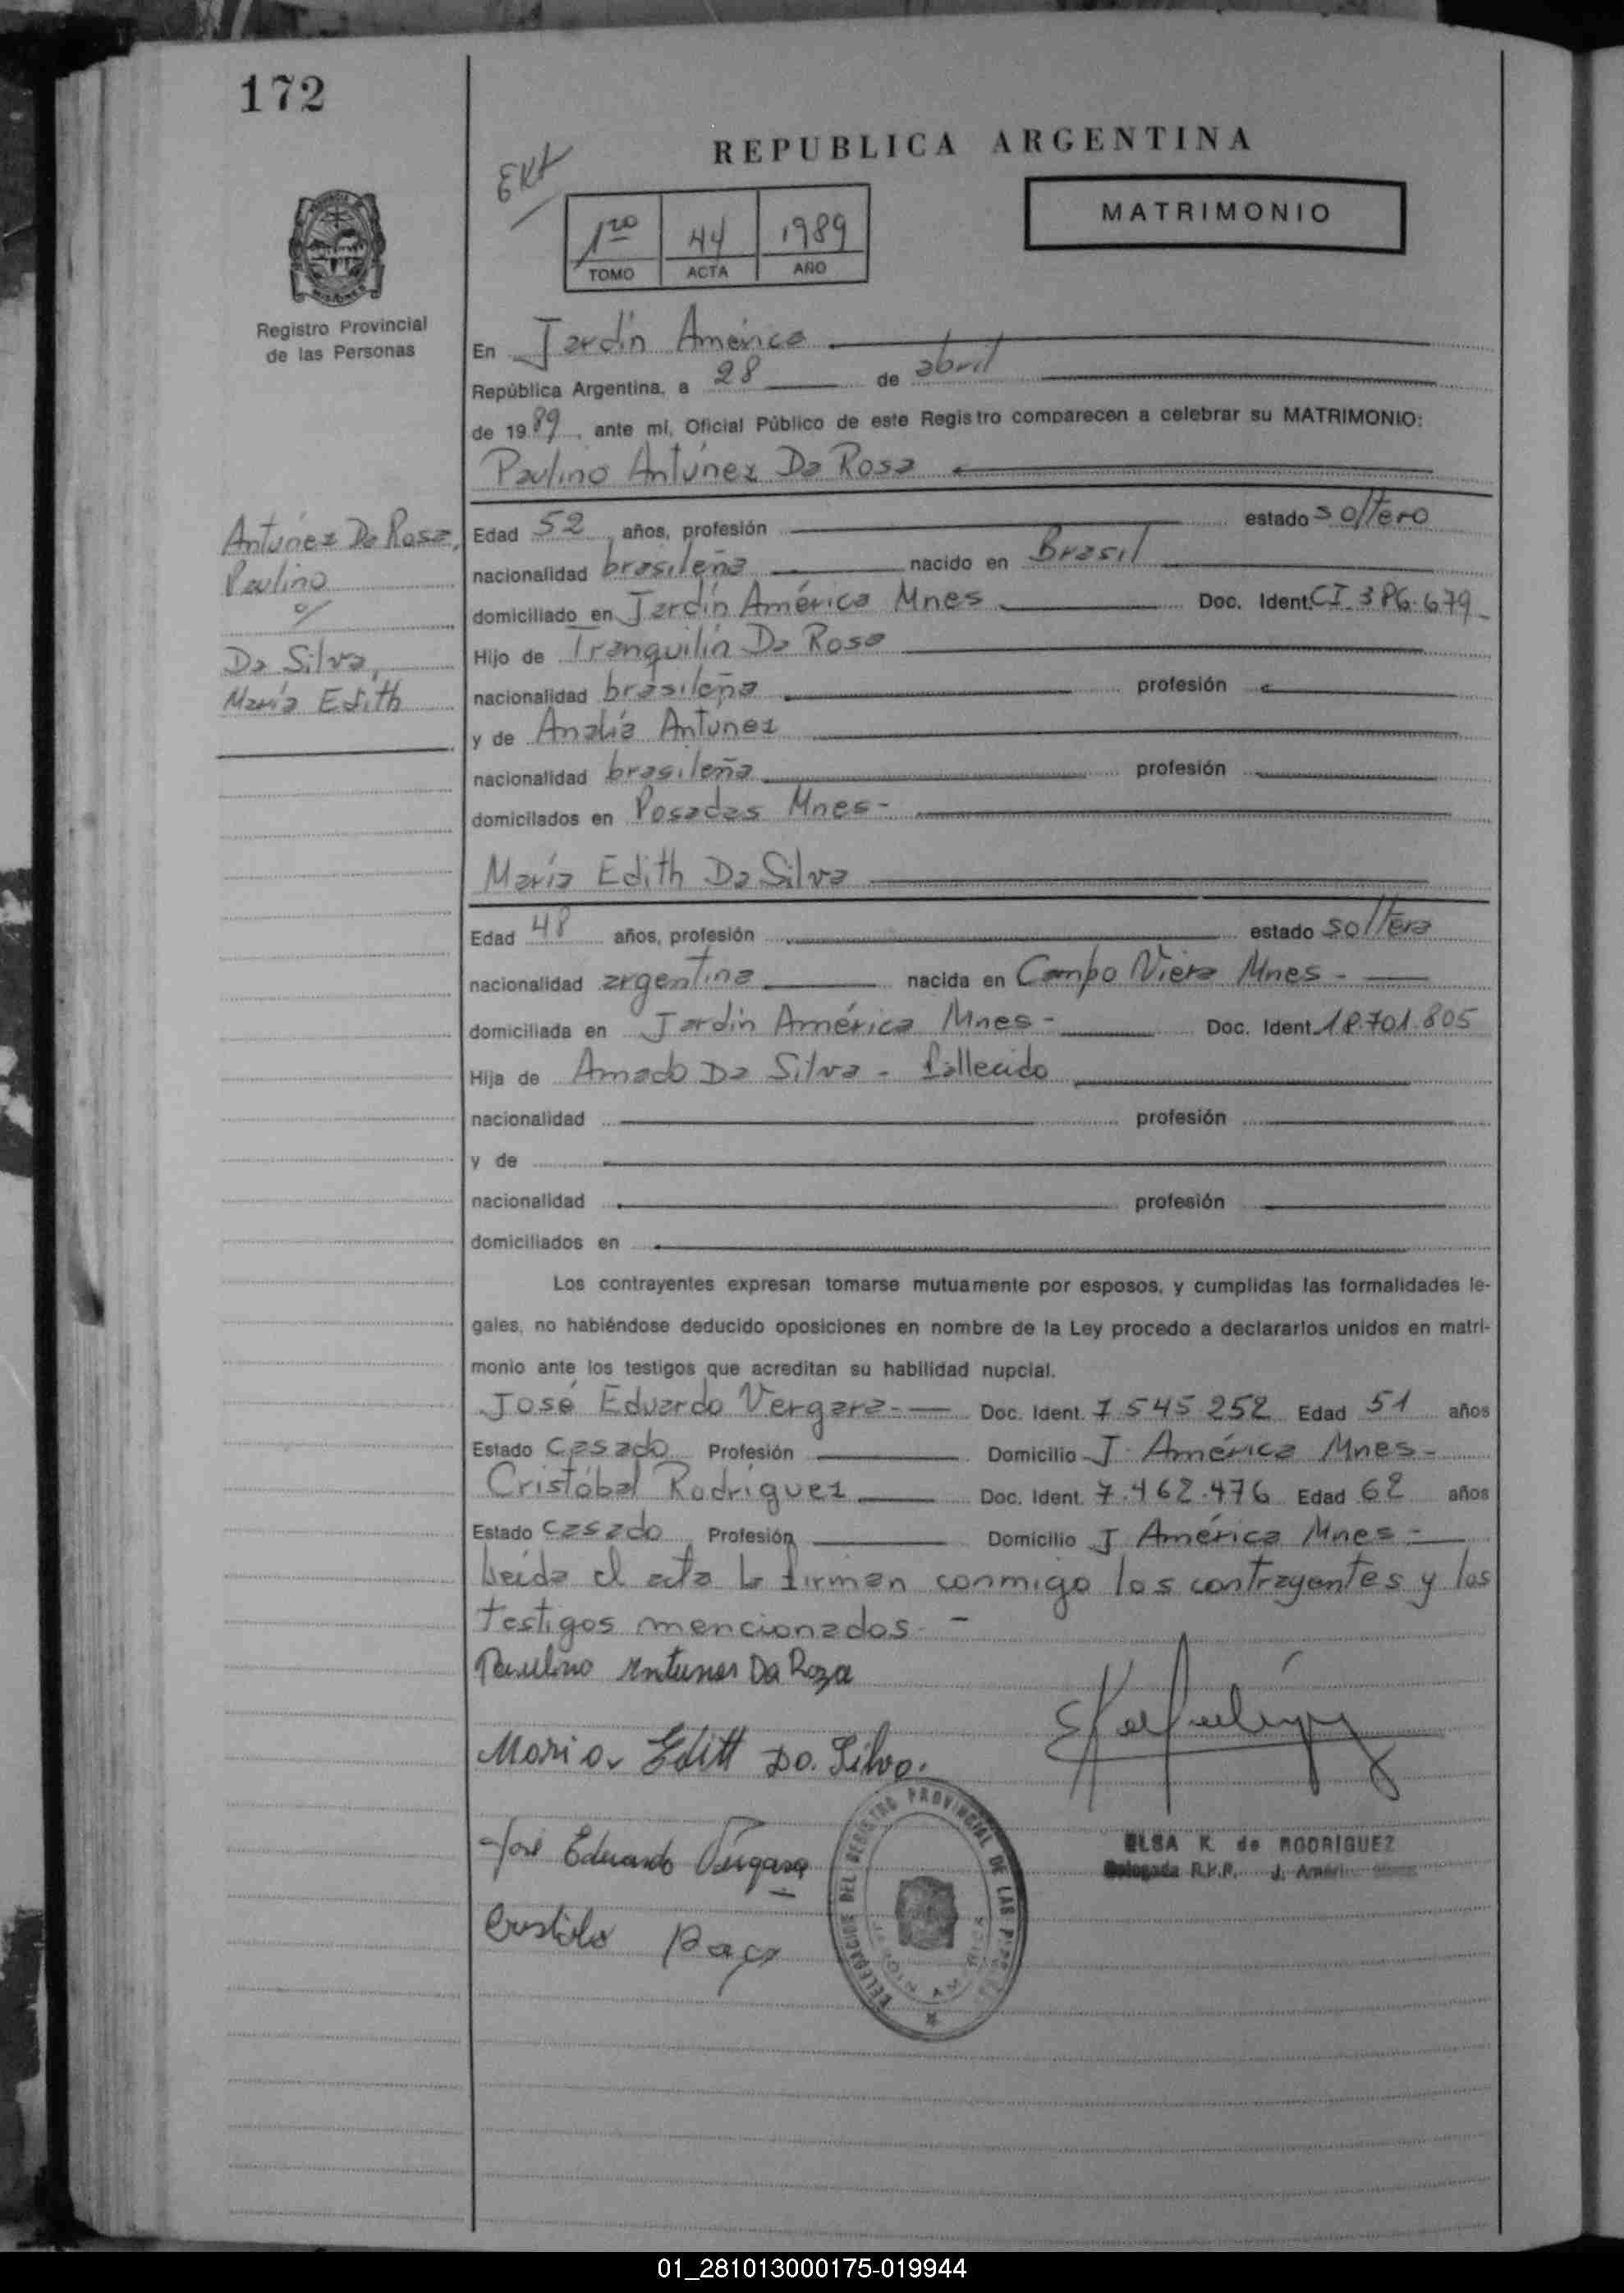 172
REPUBLICA ARGENTINA
MATRIMONIO
1ro 44 1989
TOMO ACTA AÑO
MISIONES
Registro Provincial
de las Personas
En Jardín América
República Argentina, a 28 de abril
de 1989, ante mí, Oficial Público de este Registro comparecen a celebrar su MATRIMONIO:
Paulino Antúnez Da Rosa
Antúnez Da Rosa,
Paulino
c/
Da Silva,
María Edith
Edad 52 años, profesión estado soltero
nacionalidad brasileña nacido en Brasil
domiciliado en Jardín América Mnes Doc. Ident. CI 386.679
Hijo de Tranquilín Da Rosa
nacionalidad brasileña profesión
y de Analía Antunez
nacionalidad brasileña profesión
domicilados en Posadas Mnes-
María Edith Da Silva
Edad 48 años, profesión estado soltera
nacionalidad argentina nacida en Campo Viera Mnes-
domiciliada en Jardín América Mnes- Doc. Ident. 18.701.805
Hija de Amado Da Silva - fallecido
nacionalidad profesión
y de
nacionalidad profesión
domiciliados en
Los contrayentes expresan tomarse mutuamente por esposos, y cumplidas las formalidades le-
gales, no habiéndose deducido oposiciones en nombre de la Ley procedo a declararlos unidos en matri-
monio ante los testigos que acreditan su habilidad nupcial.
José Eduardo Vergara- Doc. Ident. 7.545.252 Edad 51 años
Estado casado Profesión Domicilio J. América Mnes-
Cristóbal Rodríguez Doc. Ident. 7.462.476 Edad 62 años
Estado casado Profesión Domicilio J América Mnes-
Leída el acta la firman conmigo los contrayentes y los
testigos mencionados.-
Paulino Antunes Da Roza
Maria Editt Da. Silva.
José Eduardo Vergara
DELEGACION DEL REGISTRO PROVINCIAL DE LAS
ELSA K. de RODRIGUEZ
Delegada R.P.P. J. Améri
01_281013000175-019944